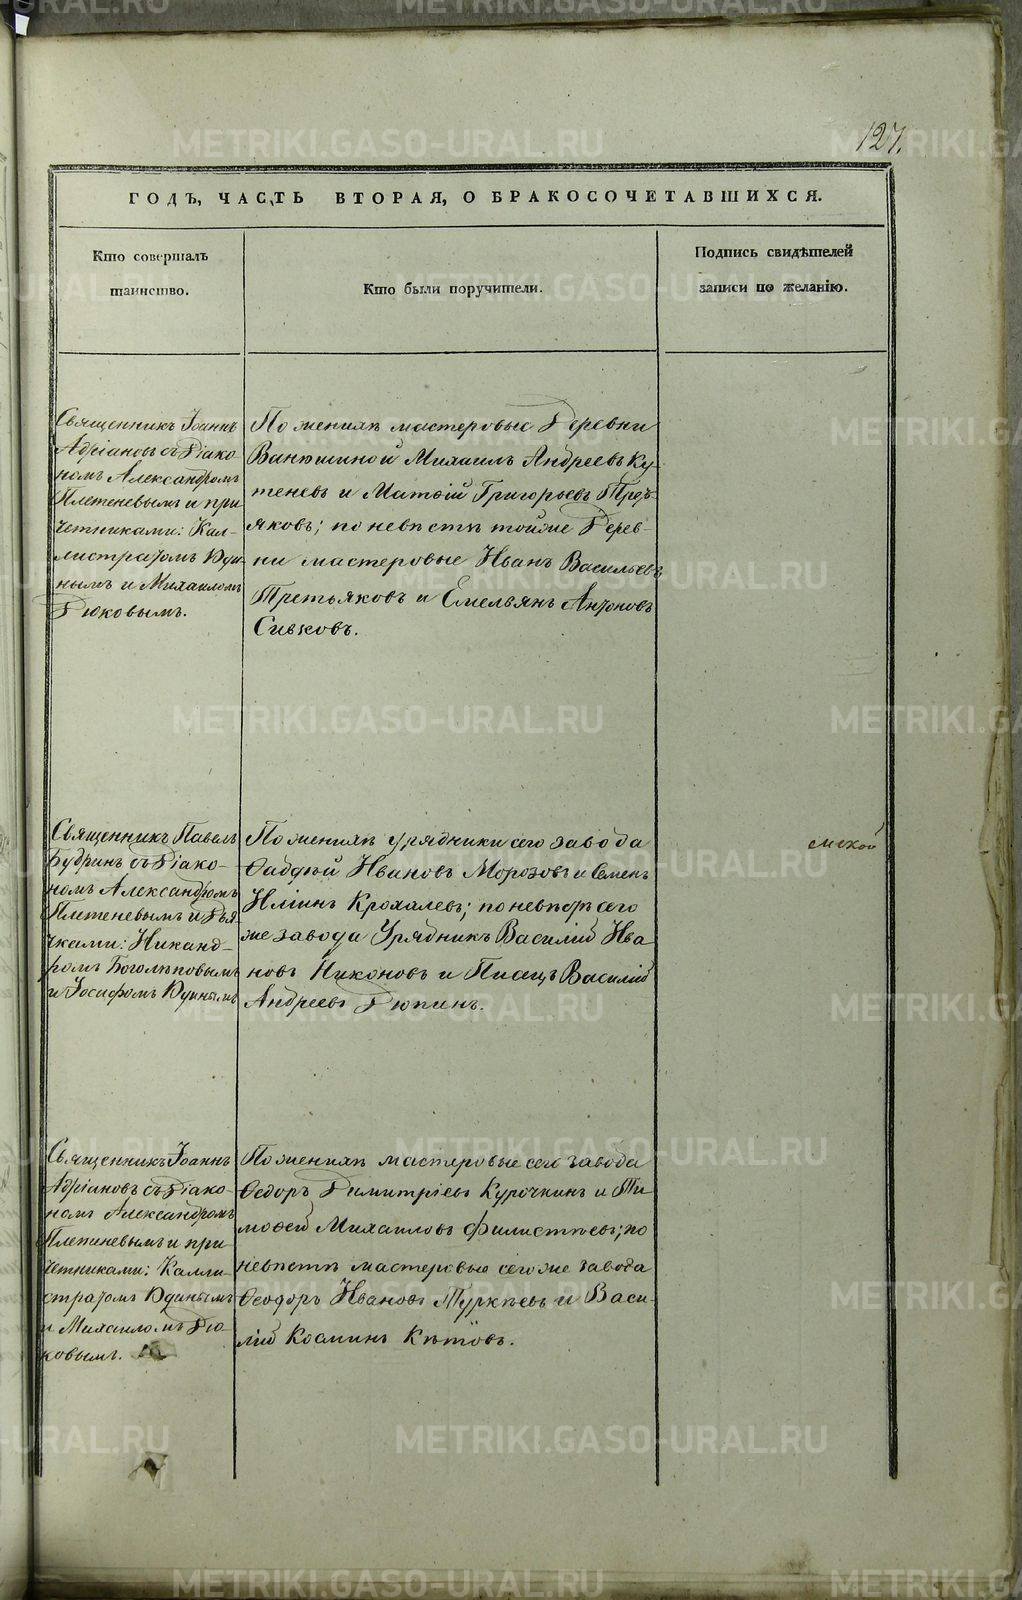 127.
ГОДЪ, ЧАСТЬ ВТОРАЯ, О БРАКОСОЧЕТАВШИХСЯ.
Кто совершалъ
таинство.
Кто были поручители.
Подпись свидѣтелей
записи по желанію.
Священникъ Іоаннъ
Адріановъ съ Діако-
номъ Александромъ
Плетеневымъ и при
четниками: Кал-
листратомъ Юди-
нымъ и Михаиломъ
Дюковымъ.
По женихѣ мастеровые Деревни
Ванюшиной Михаилъ Андреевъ Ку-
теневъ и Матѳій Григорьевъ Треть-
яковъ; по невѣстѣ тойже Дерев-
ни мастеровые Иванъ Васильевъ
Третьяковъ и Емельянъ Антоновъ
Сивковъ.
Священникъ Павелъ
Будринъ съ Діако-
номъ Александромъ
Плетеневымъ и Дья-
чками: Никанд-
ромъ Боголѣповымъ
и Іосифомъ Юдинымъ
По женихѣ Урядники сего завода
Фаддѣй Ивановъ Морозовъ и Семенъ
Иліинъ Крохалевъ; по невѣстѣ сего
же завода Урядникъ Василій Ива
новъ Никоновъ и Писецъ Василій
Андреевъ Дюпинъ.
Священникъ Іоаннъ
Адріановъ съ Діако-
номъ Александромъ
Плетеневымъ и при
четниками: Калли-
стратомъ Юдинымъ
и Михаиломъ Дю-
ковымъ.
По женихѣ мастеровые сего завода
Ѳедоръ Димитріевъ Курочкинъ и Ти
моѳей Михаиловъ Филистѣевъ; по
невѣстѣ мастеровые сего же завода
Ѳеодоръ Ивановъ Туркѣевъ и Васи-
лій Косминъ Кѣтовъ.
METRIKI.GASO-URAL.RU